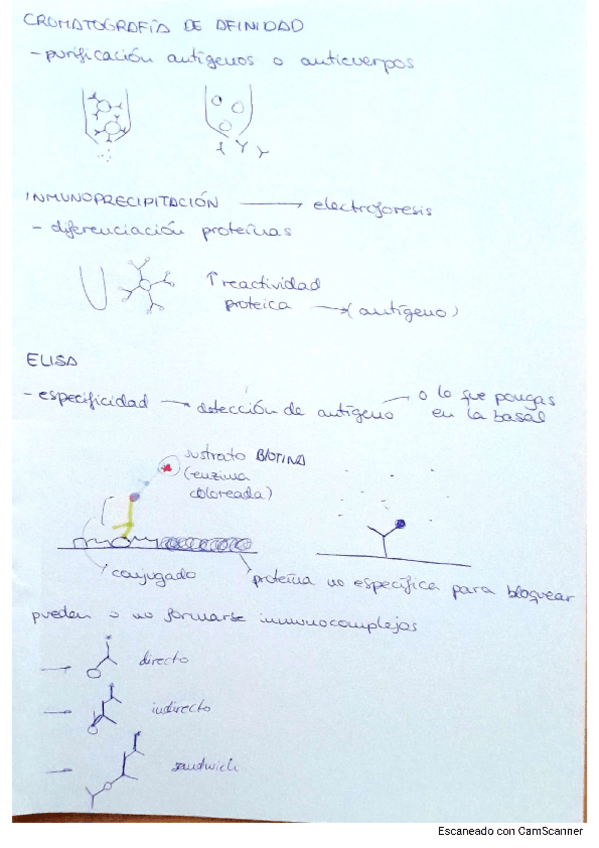 CROMATOGRAFÍA DE AFINIDAD
- purificación antígenos o anticuerpos
INMUNOPRECIPITACIÓN → electroforesis
- diferenciación proteínas
↑ reactividad
proteica → (antígeno)
ELISA
- especificidad → detección de antígeno → o lo que pongas
en la basal
sustrato BIOTINA
(enzima
coloreada)
conjugado
proteína no específica para bloquear
pueden o no formarse inmunocomplejos
→ directo
→ indirecto
→ sandwich
Escaneado con CamScanner